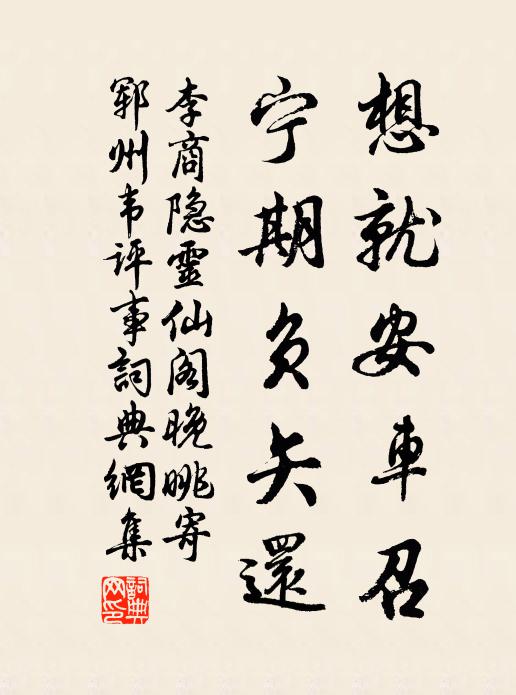 想就安車召
宁期负矢還
李商隐靈仙阁晚眺寄
鄆州韦评事詞典網集
詞典網印